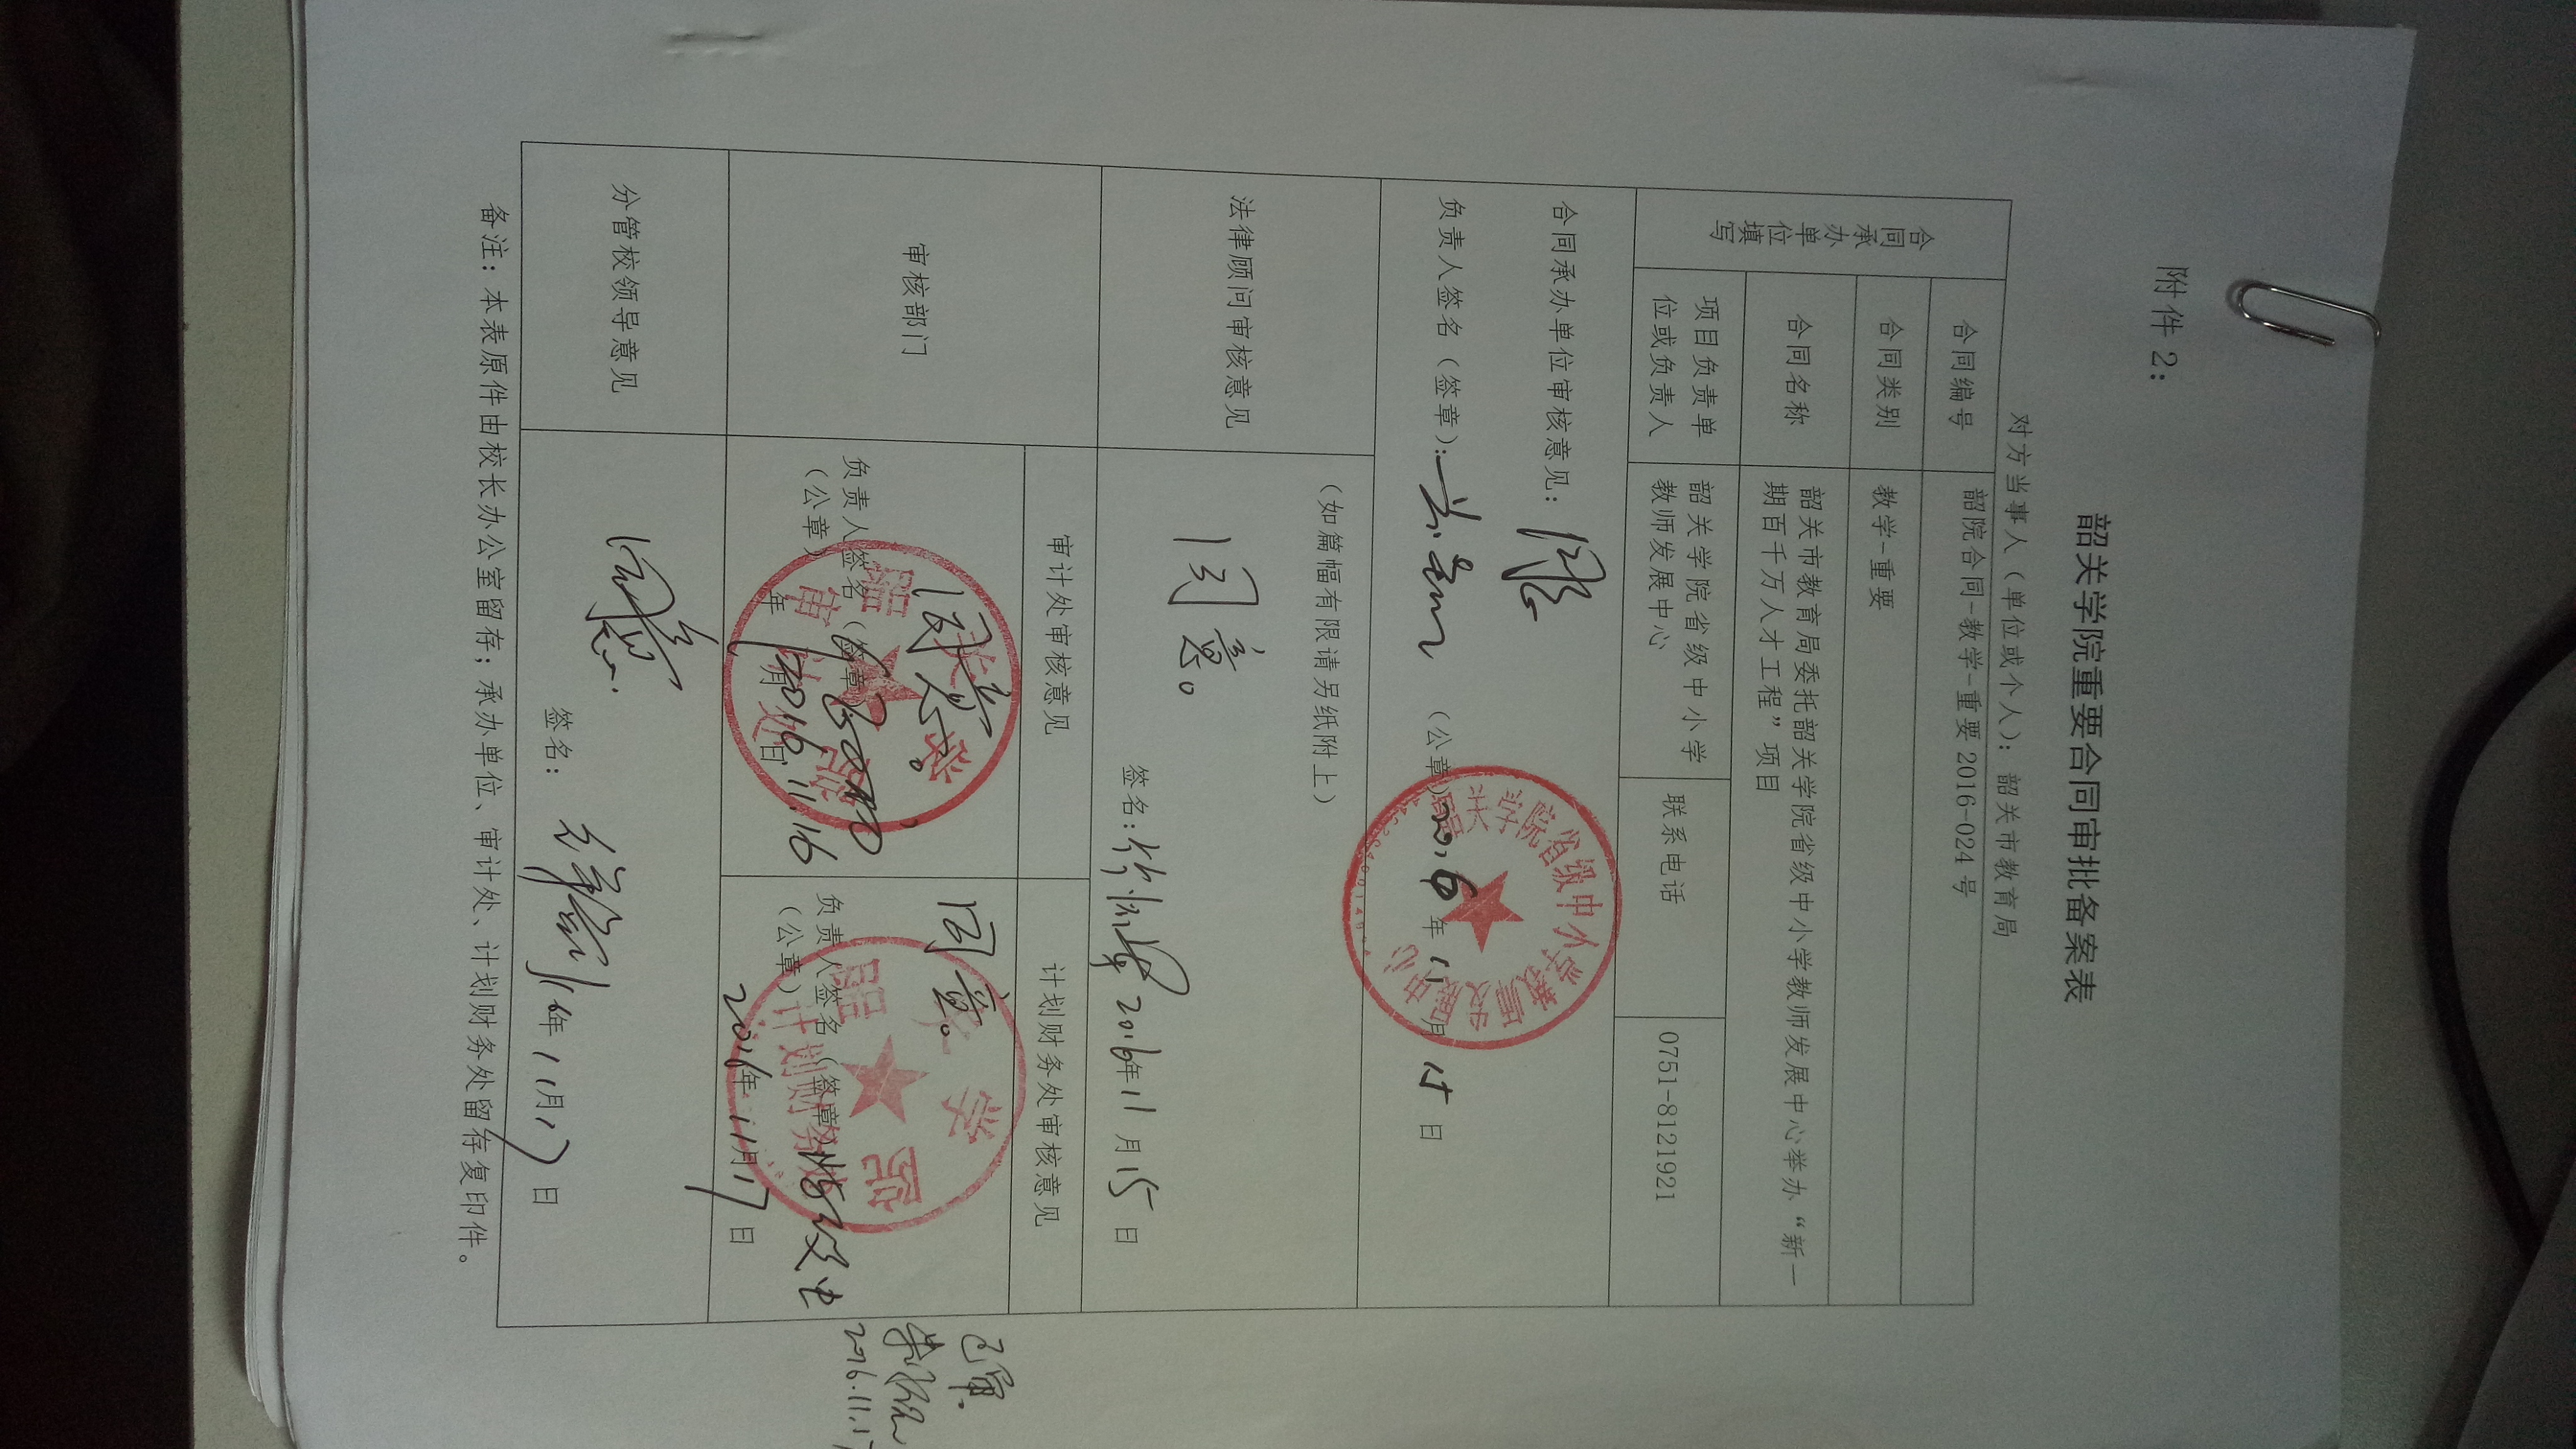 附件 2：
韶关学院重要合同审批备案表
对方当事人（单位或个人）：韶关市教育局
合同承办单位填写
合同编号
韶院合同-教学-重要 2016-024 号
合同类别
教学-重要
合同名称
韶关市教育局委托韶关学院省级中小学教师发展中心举办“新一
期百千万人才工程”项目
项目负责单
位或负责人
韶关学院省级中小学
教师发展中心
联系电话
0751-8121921
合同承办单位审核意见：同意
负责人签名（签章）：
（公章）2016 年 11 月 15 日
韶关学院省级中小学教师发展中心
法律顾问审核意见
（如篇幅有限请另纸附上）
同意。
签名： 2016年 11 月 15 日
审核部门
审计处审核意见
同意。
负责人签名（签章）
（公章）
2016.11.16
年 月 日
韶关学院
审计处
计划财务处审核意见
同意。
负责人签名（签章）
（公章）
2016年 11月17 日
韶关学院
计划财务处
已审
2016.11.17
分管校领导意见
同意
签名： 16年 11月17 日
备注：本表原件由校长办公室留存；承办单位、审计处、计划财务处留存复印件。